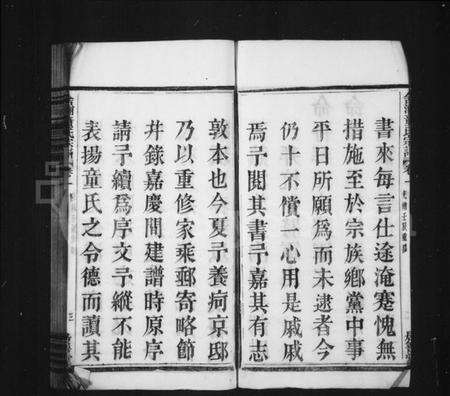 書來每言仕途淹蹇愧無
措施至於宗族鄉黨中事
平日所願爲而未逮者今
仍十不償一心用是戚戚
焉予閱其書予嘉其有志
敦本也今夏予養疴京邸
乃以重修家乘郵寄略節
幷錄嘉慶間建譜時原序
請予續爲序文予縱不能
表揚童氏之令德而讀其